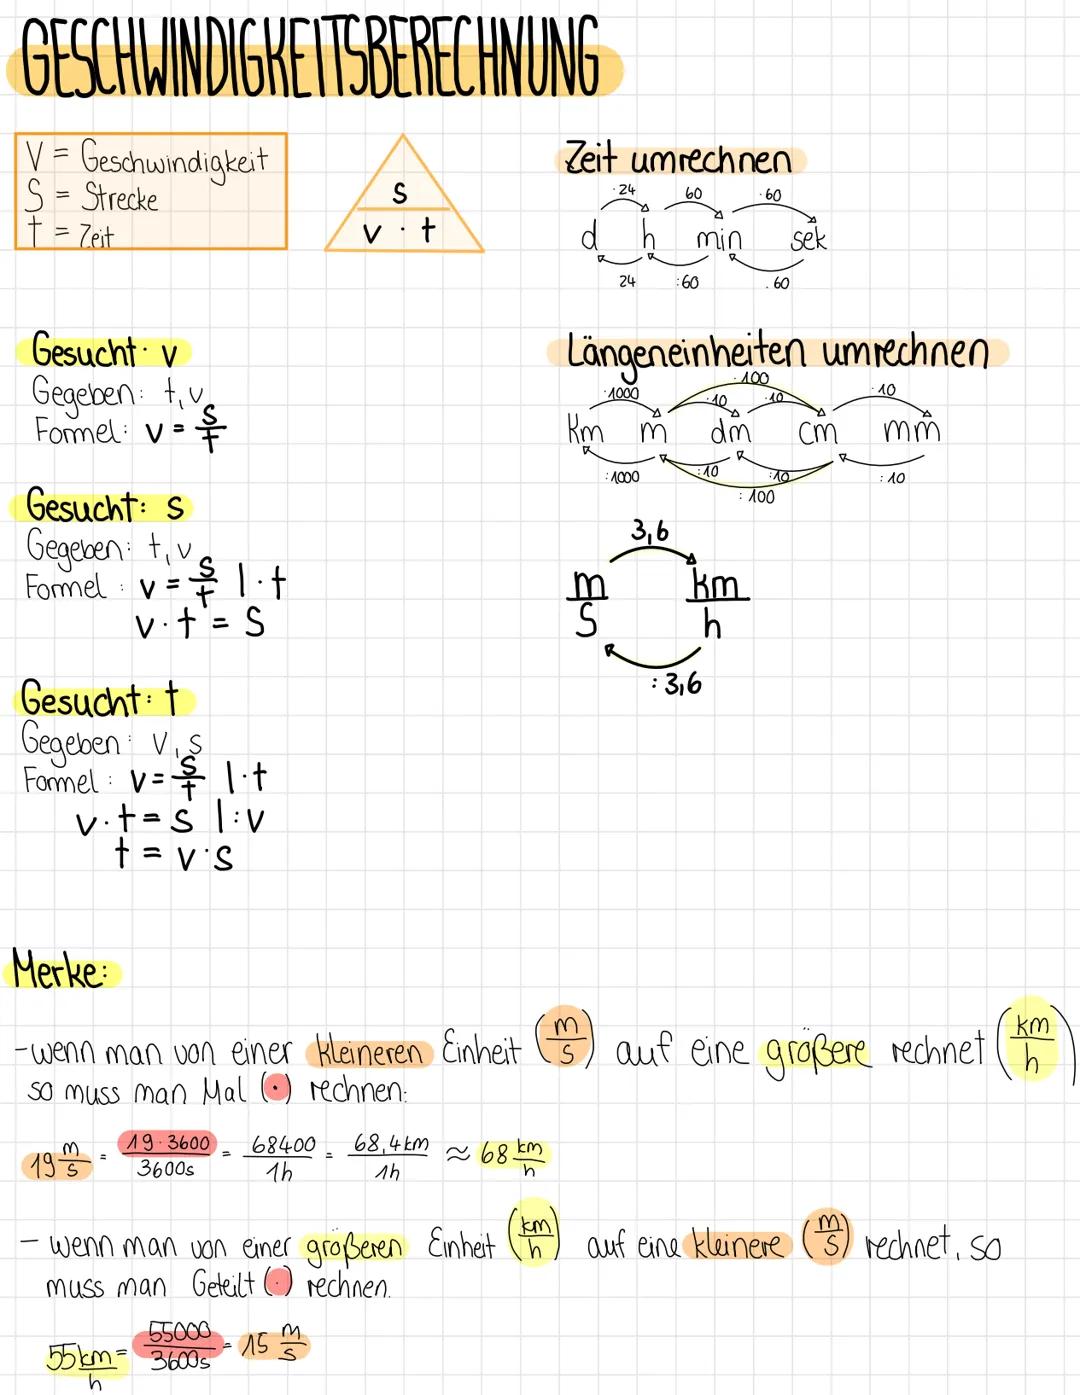 GESCHWINDIGKEITSBERECHNUNG
V = Geschwindigkeit
S = Strecke
t = Zeit
s
v · t
Zeit umrechnen
· 24 60 · 60
d h min sek
24 :60 . 60
Gesucht: v
Gegeben: t, v
Formel: v = s/t
Längeneinheiten umrechnen
· 100
· 1000 · 10 · 10 · 10
Km m dm cm mm
: 1000 : 10 : 10 : 10
: 100
Gesucht: s
Gegeben: t, v
Formel: v = s/t | · t
v · t = S
3,6
m/s km/h
: 3,6
Gesucht: t
Gegeben: V, s
Formel: v = s/t | · t
v · t = s | : v
t = v · s
Merke:
- wenn man von einer kleineren Einheit (m/s) auf eine größere rechnet (km/h)
so muss man Mal (·) rechnen:
19 m/s = 19 · 3600/3600s = 68400/1h = 68,4km/1h ≈ 68 km/h
- wenn man von einer größeren Einheit (km/h) auf eine kleinere (m/s) rechnet, so
muss man Geteilt (:) rechnen.
55 km/h = 55000/3600s = 15 m/s